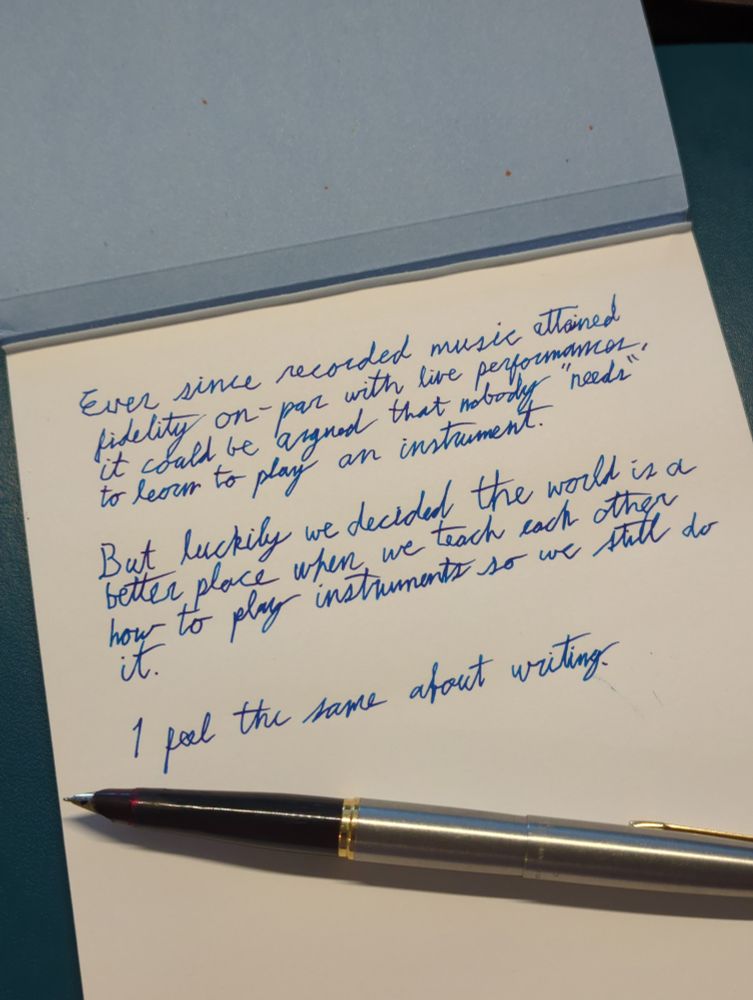 Ever since recorded music attained
fidelity on-par with live performances,
it could be argued that nobody "needs"
to learn to play an instrument.
But luckily we decided the world is a
better place when we teach each other
how to play instruments so we still do
it.
I feel the same about writing.